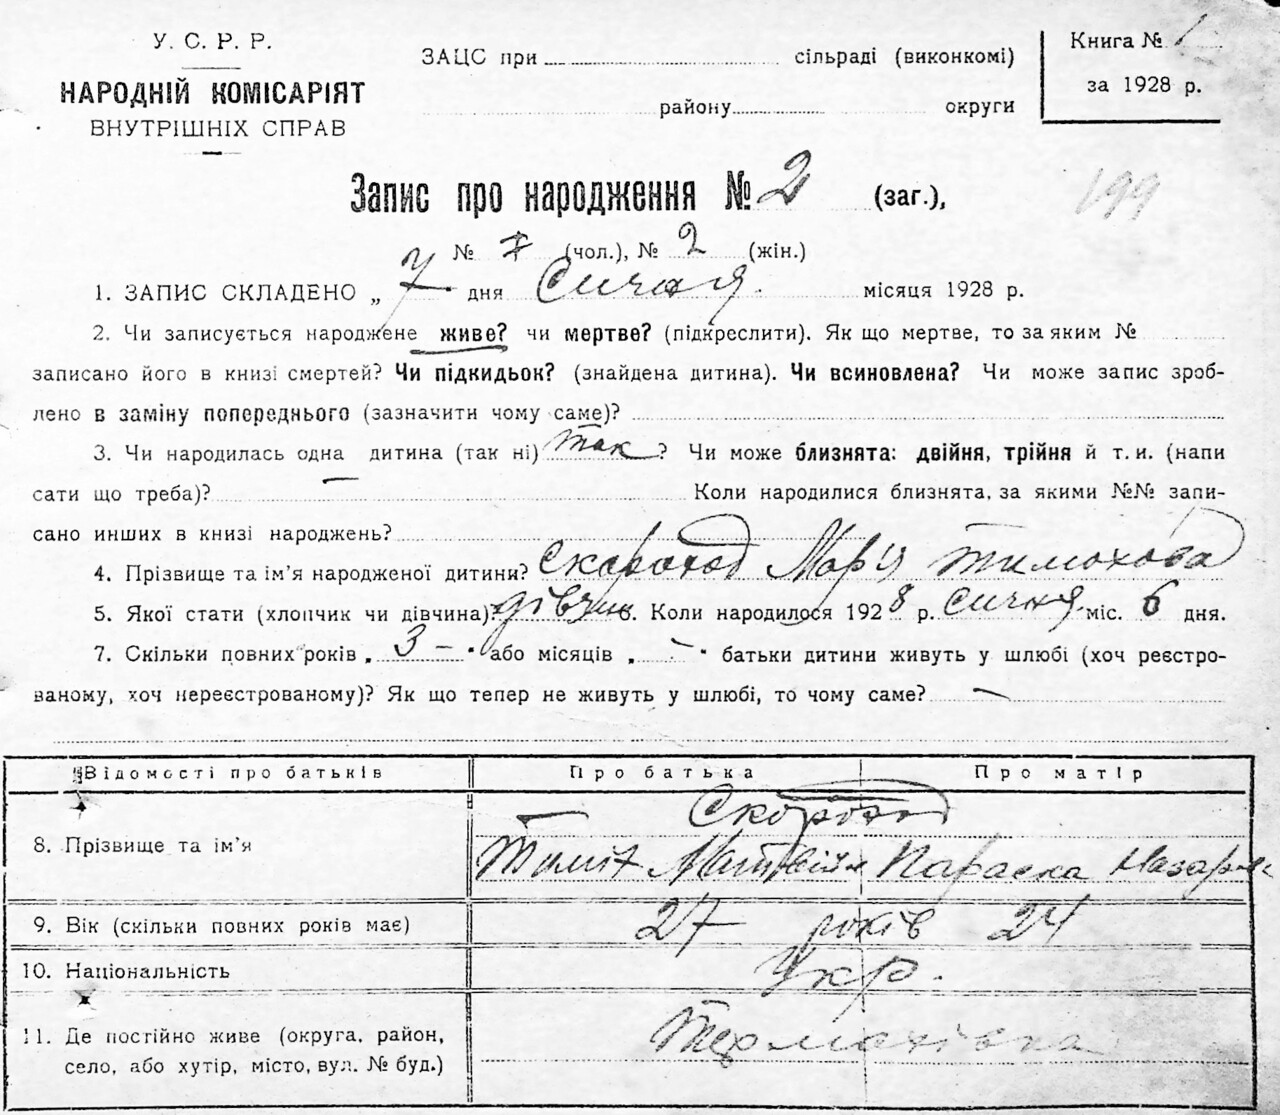 У. С. Р. Р.
НАРОДНІЙ КОМІСАРІЯТ
ВНУТРІШНІХ СПРАВ
ЗАЦС при сільраді (виконкомі)
району округи
Книга № 1
за 1928 р.
Запис про народження № 2 (заг.),
199
№ (чол.), № 2 (жін.)
1. ЗАПИС СКЛАДЕНО „ 7 дня Січня місяця 1928 р.
2. Чи записується народжене живе? чи мертве? (підкреслити). Як що мертве, то за яким №
записано його в книзі смертей? Чи підкидьок? (знайдена дитина). Чи всиновлена? Чи може запис зроб-
лено в заміну попереднього (зазначити чому саме)?
3. Чи народилась одна дитина (так ні) так ? Чи може близнята: двійня, трійня й т. и. (напи
сати що треба)? — Коли народилися близнята, за якими №№ запи-
сано инших в книзі народжень?
4. Прізвище та ім'я народженої дитини? Скороход Марія Тимохова
5. Якої стати (хлопчик чи дівчина)? дівчин. Коли народилося 1928 р. Січня міс. 6 дня.
7. Скільки повних років „ 3 — " або місяців „ - " батьки дитини живуть у шлюбі (хоч реєстро-
ваному, хоч нереєстрованому)? Як що тепер не живуть у шлюбі, то чому саме? —
Відомості про батьків Про батька Про матір
Скороход
8. Прізвище та ім'я Тиміх Матвійл Параска Назаров
9. Вік (скільки повних років має) 27 років 24
10. Національність Укр.
11. Де постійно живе (округа, район, Термахівка
село, або хутір, місто, вул. № буд.)